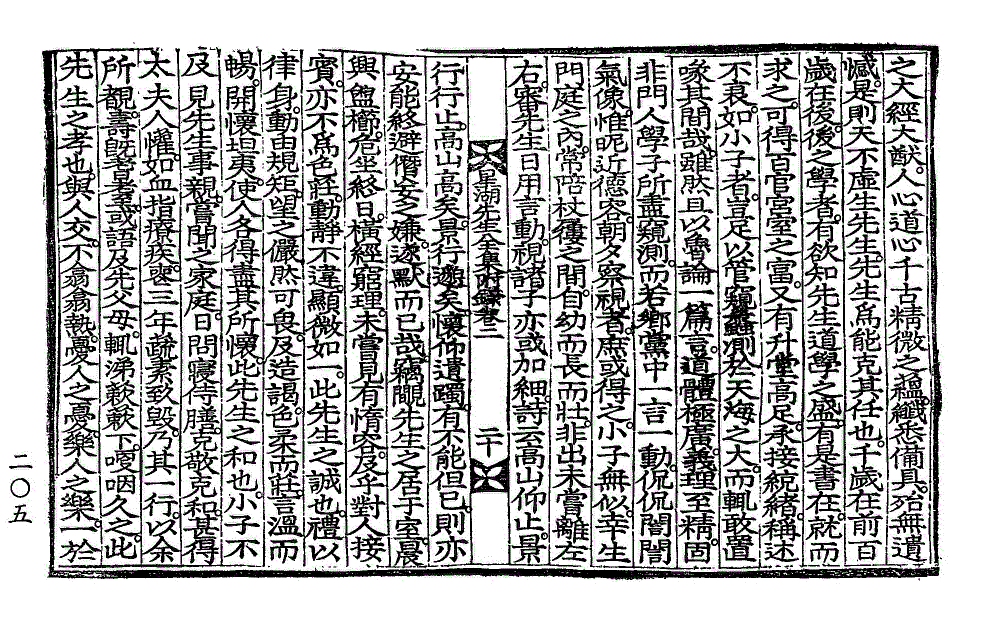 之大經大猷人心道心千古精微之蘊纖悉備具殆無遺
憾是則天不虛生先生先生爲能克其任也千歲在前百
歲在後後之學者有欲知先生道學之盛有是書在就而
求之可得百官宮室之富又有升堂高足承接統緖稱述
不衰如小子者豈足以管窺蠡測於天海之大而輒敢置
喙其間哉雖然且以魯論一篇言道體極廣義理至精固
非門人學子所盡窺測而若鄕黨中一言一動侃侃誾誾
氣像惟昵近德容朝夕察視者庶或得之小子無似幸生
門庭之內常陪杖屨之間自幼而長而壯非出未嘗離左
右審先生日用言動視諸子亦或加細詩云高山仰止景
星湖先生全集附錄卷二 二十
行行止高山高矣景行邈矣懷仰遺躅有不能但已則亦
安能終避僭妄之嫌遂默而已哉竊覸先生之居于室晨
興盥櫛危坐終日橫經窮理未嘗見有惰容及乎對人接
賓亦不爲色莊動靜不違顯微如一此先生之誠也禮以
律身動由規矩望之儼然可畏及造謁色柔而莊言溫而
暢開懷坦夷使人各得盡其所懷此先生之和也小子不
及見先生事親嘗聞之家庭日問寢侍膳克敬克和甚得
太夫人懽如血指療疾喪三年蔬素致毀乃其一行以余
所覩壽旣耆耋或語及先父母輒涕欷歔下噎咽久之此
先生之孝也與人交不翕翕熱憂人之憂樂人之樂一於
二〇五